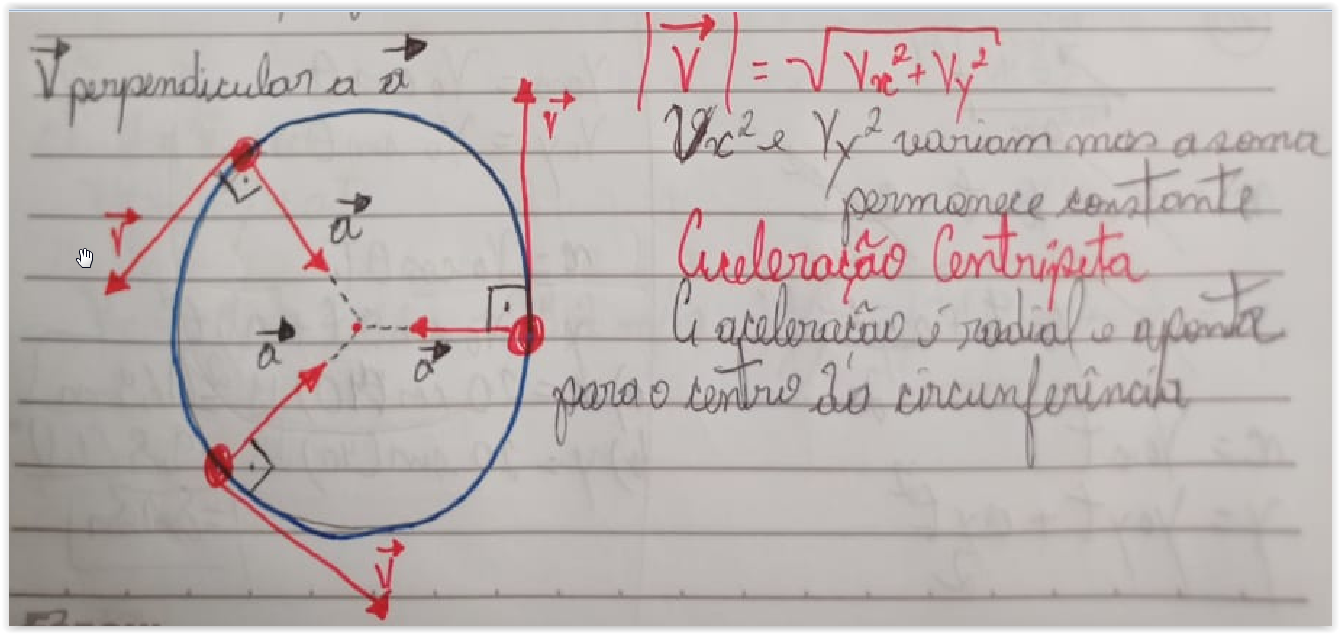 V⃗ perpendicular a a⃗
|V⃗| = √Vx² + Vy²
Vx² e Vy² variam mas a soma
permanece constante
Aceleração Centrípeta
A aceleração é radial e aponta
para o centro da circunferência
V⃗
V⃗
a⃗
a⃗
a⃗
V⃗